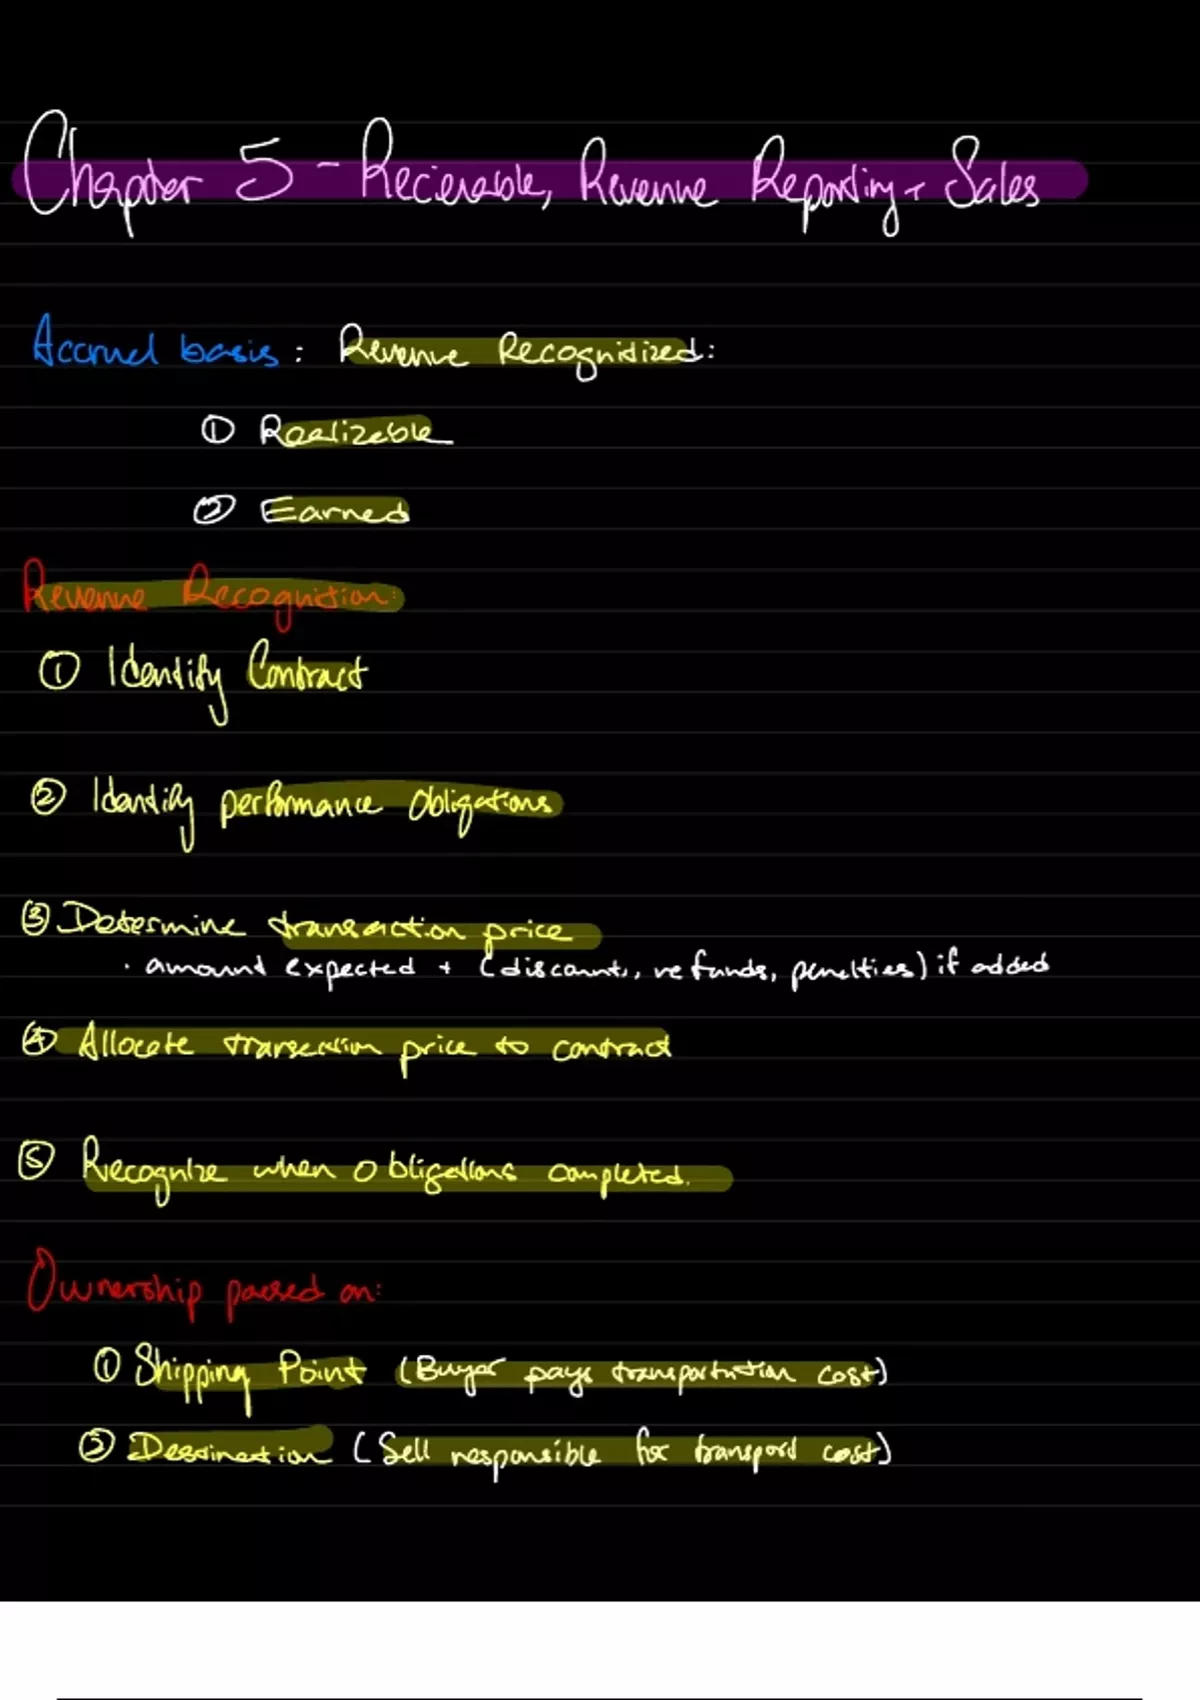 Chapter 5 - Recievable, Revenue Reporting + Sales
Accrual basis: Revenue Recognitized:
① Realizable
② Earned
Revenue Recognition:
① Identify Contract
② Identify performance Obligations
③ Determine transaction price
· amount expected + (discounts, refunds, penalties) if added
④ Allocate transaction price to contract
⑤ Recognize when obligations completed.
Ownership passed on:
① Shipping Point (Buyer pays transportation cost)
② Destination (Sell responsible for transport cost)